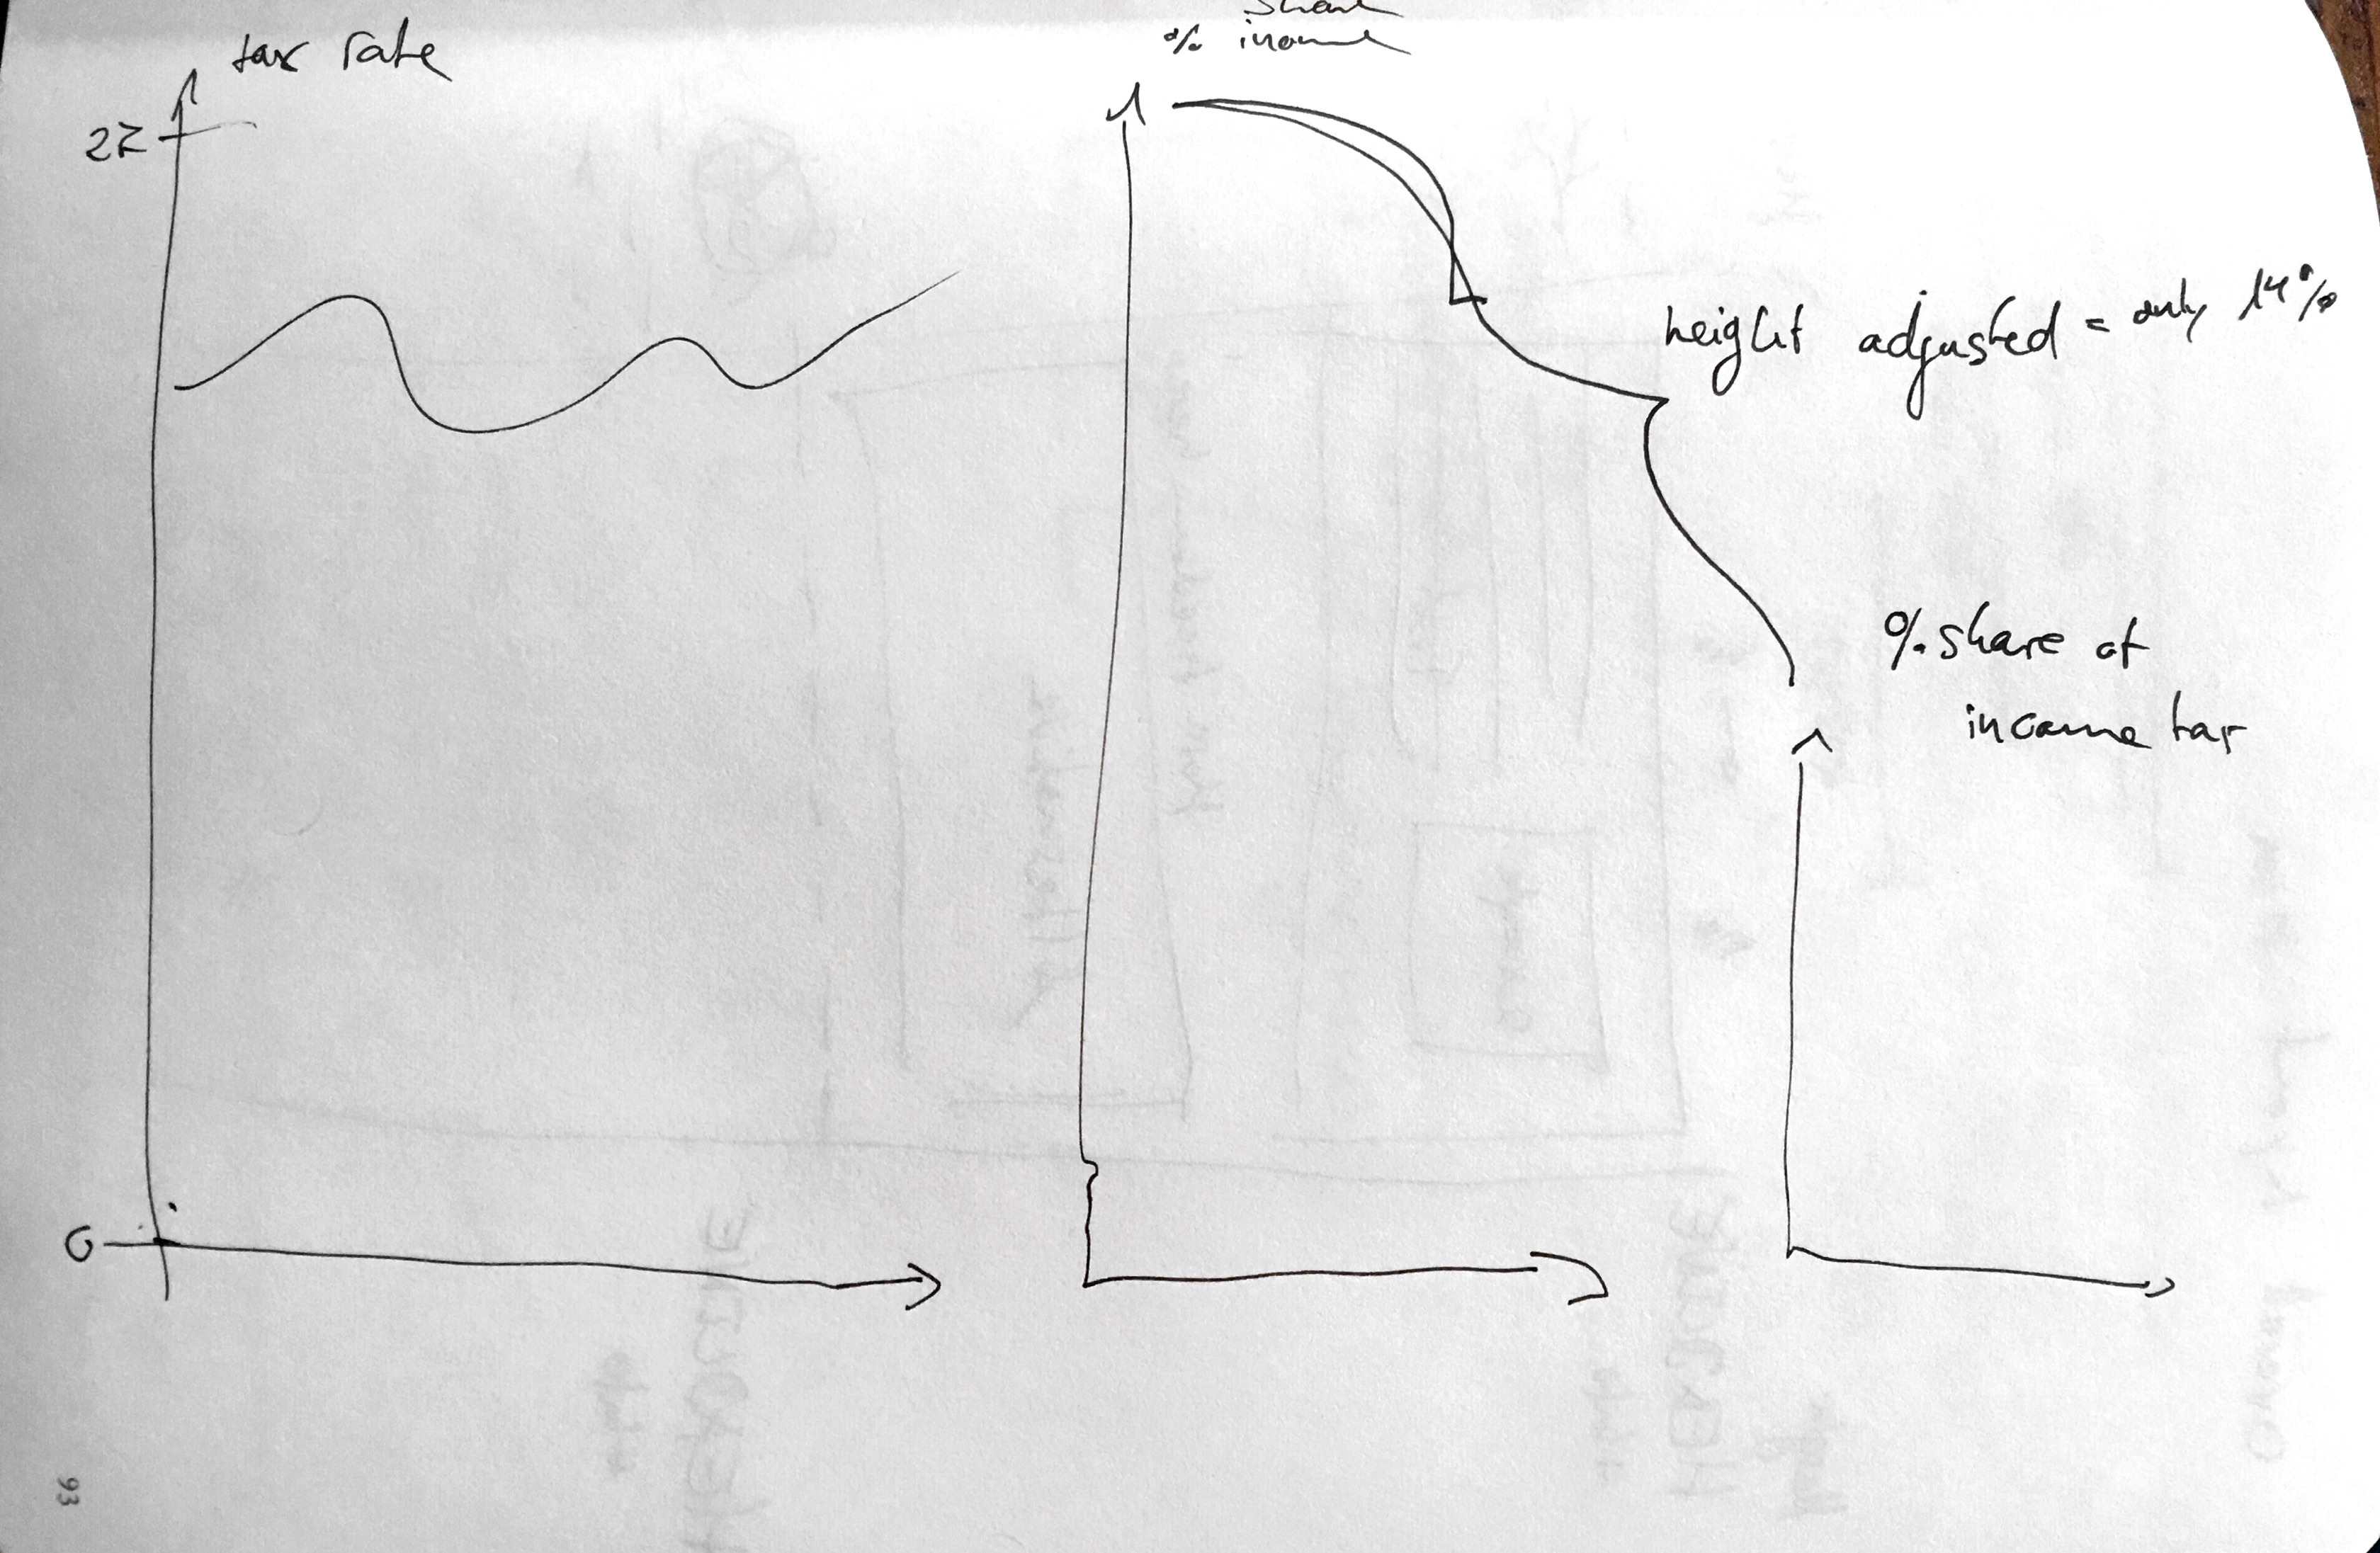 tax rate
27
0
share
% income
height adjusted = only 14%
% share of
income tax
93